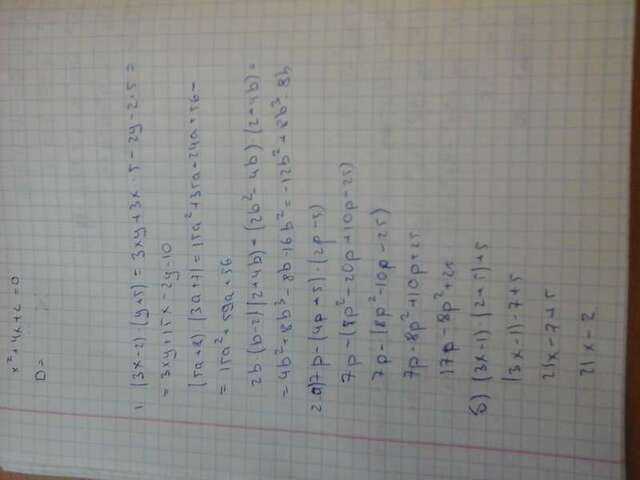 x² + 4x + c = 0
D =
1. (3x-2)·(y+5) = 3xy + 3x·5 - 2y - 2·5 =
= 3xy + 15x - 2y - 10
(5a+8)(3a+7) = 15a² + 35a + 24a + 56 =
= 15a² + 59a + 56
2b(b-2)(2+4b) = (2b² - 4b)·(2+4b) =
= 4b² + 8b³ - 8b - 16b² = -12b² + 8b³ - 8b
2. a) 7p - (4p+5)·(2p-5)
7p - (8p² - 20p + 10p - 25)
7p - (8p² - 10p - 25)
7p - 8p² + 10p + 25
17p - 8p² + 25
б) (3x-1)·(2+5)+5
(3x-1)·7+5
21x-7+5
21x-2